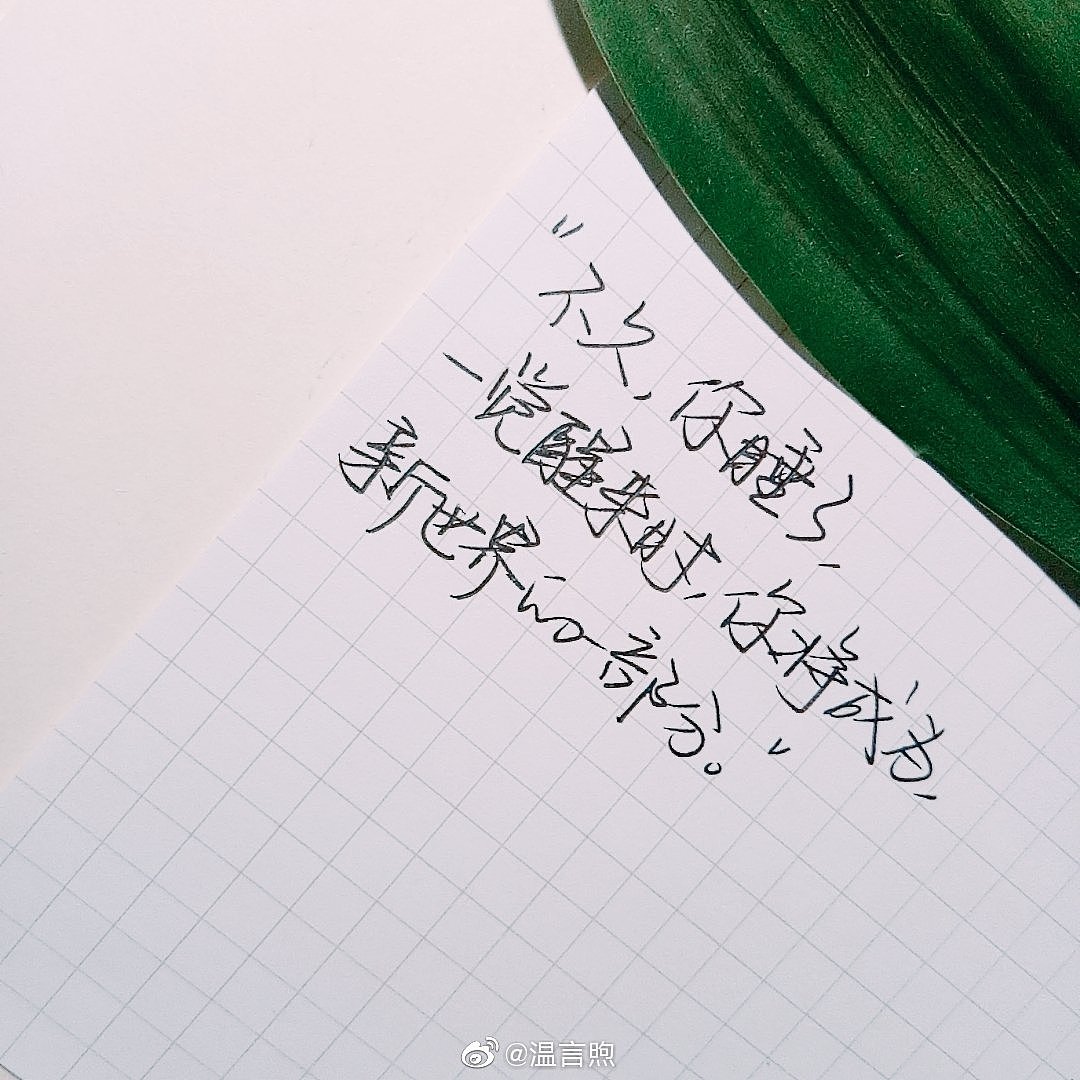 "不久,你睡了,
一觉醒来时,你将成为,
新世界的一部分。"
@温言煦